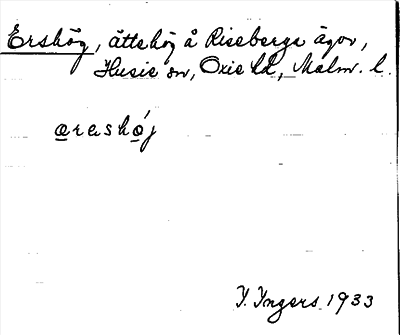 Ershög, ättehög å Risebergs ägor,
Husie sn, Oxie hd, Malm. l.
œrashǿj
I. Ingers 1933